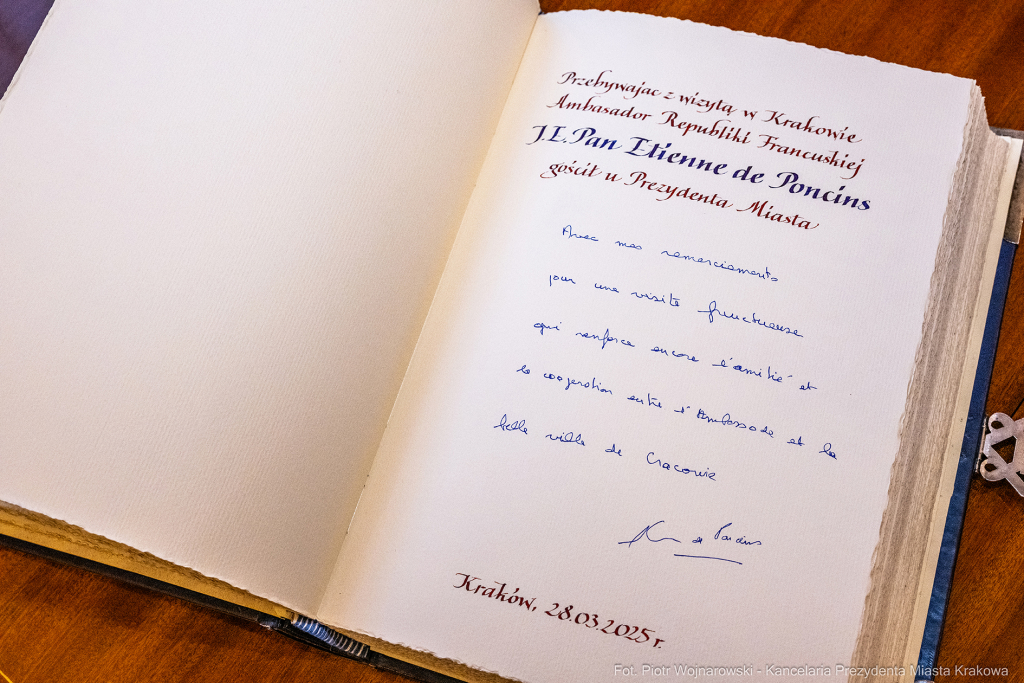 Przebywając z wizytą w Krakowie
Ambasador Republiki Francuskiej
J.E. Pan Etienne de Poncins
gościł u Prezydenta Miasta
Avec mes remerciements
pour une visite fructueuse
qui renforce encore l'amitié et
la coopération entre l'Ambassade et la
belle ville de Cracovie
de Poncins
Kraków, 28.03.2025 r.
Fot. Piotr Wojnarowski - Kancelaria Prezydenta Miasta Krakowa